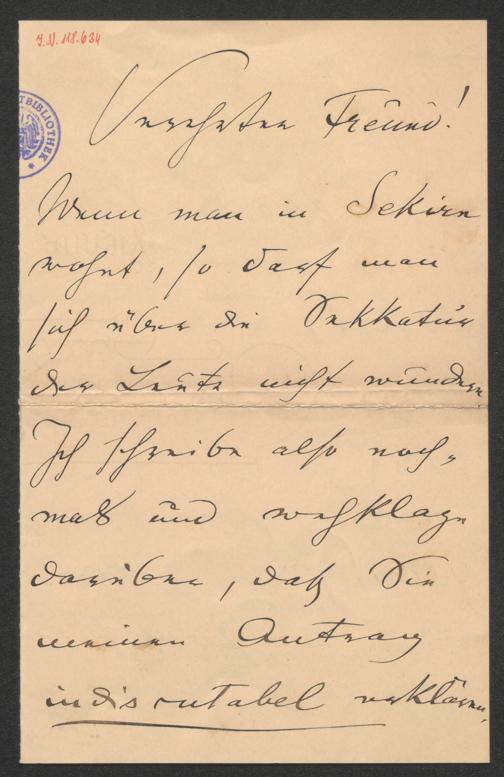 J.N. 118.634
TBIBLIOTHEK
Verehrter Freund!
Wenn man in Sekirn
wohnt, so darf man
sich über die Sekkatur
der Leute nicht wundern
Ich schreibe also noch„
mals und wehklage
darüber, daß Sie
meinen Antrag
indiscutabel erklären,